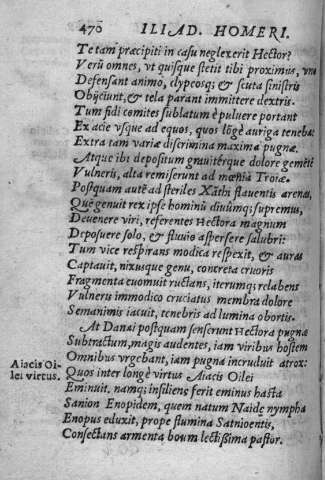 470 ILIAD. HOMERI.
Te tam præcipiti in casu neglexerit Hector?
Verũ omnes, vt quisque stetit tibi proximus, vna
Defensant animo, clypeosq; & scuta sinistris
Obijciunt, & tela parant immittere dextris.
Tum fidi comites sublatum è puluere portant
Ex acie vsque ad equos, quos lõgè auriga tenebat
Extra tam variæ discrimina maxima pugnæ.
Atque ibi depositum grauitérque dolore gemẽtẽ
Vulneris, alta remiserunt ad mœnia Troiæ.
Postquam autẽ ad steriles Xãthi flauentis arenas,
Quẽ genuit rex ipse hominũ diuũmq; supremus,
Deuenere viri, referentes Hectora magnum
Deposuere solo, & fluuio aspersere salubri:
Tum vice respirans modica respexit, & auras
Captauit, nixusque genu, concreta cruoris
Fragmenta euomuit ructans, iterumq; relabens
Vulneris immodico cruciatus membra dolore
Semanimis iacuit, tenebris ad lumina obortis.
At Danai postquam senserunt Hectora pugnæ
Subtractum, magis audentes, iam viribus hostem
Omnibus vrgebant, iam pugna incruduit atrox:
Aiacis Oi-
lei virtus.
Quos inter longè virtus Aiacis Oilei
Eminuit. namq; insiliens ferit eminus hasta
Sanion Enopidem, quem natum Naide nympha
Enopus eduxit, prope flumina Satnioentis,
Consectans armenta boum lectissima pastor.